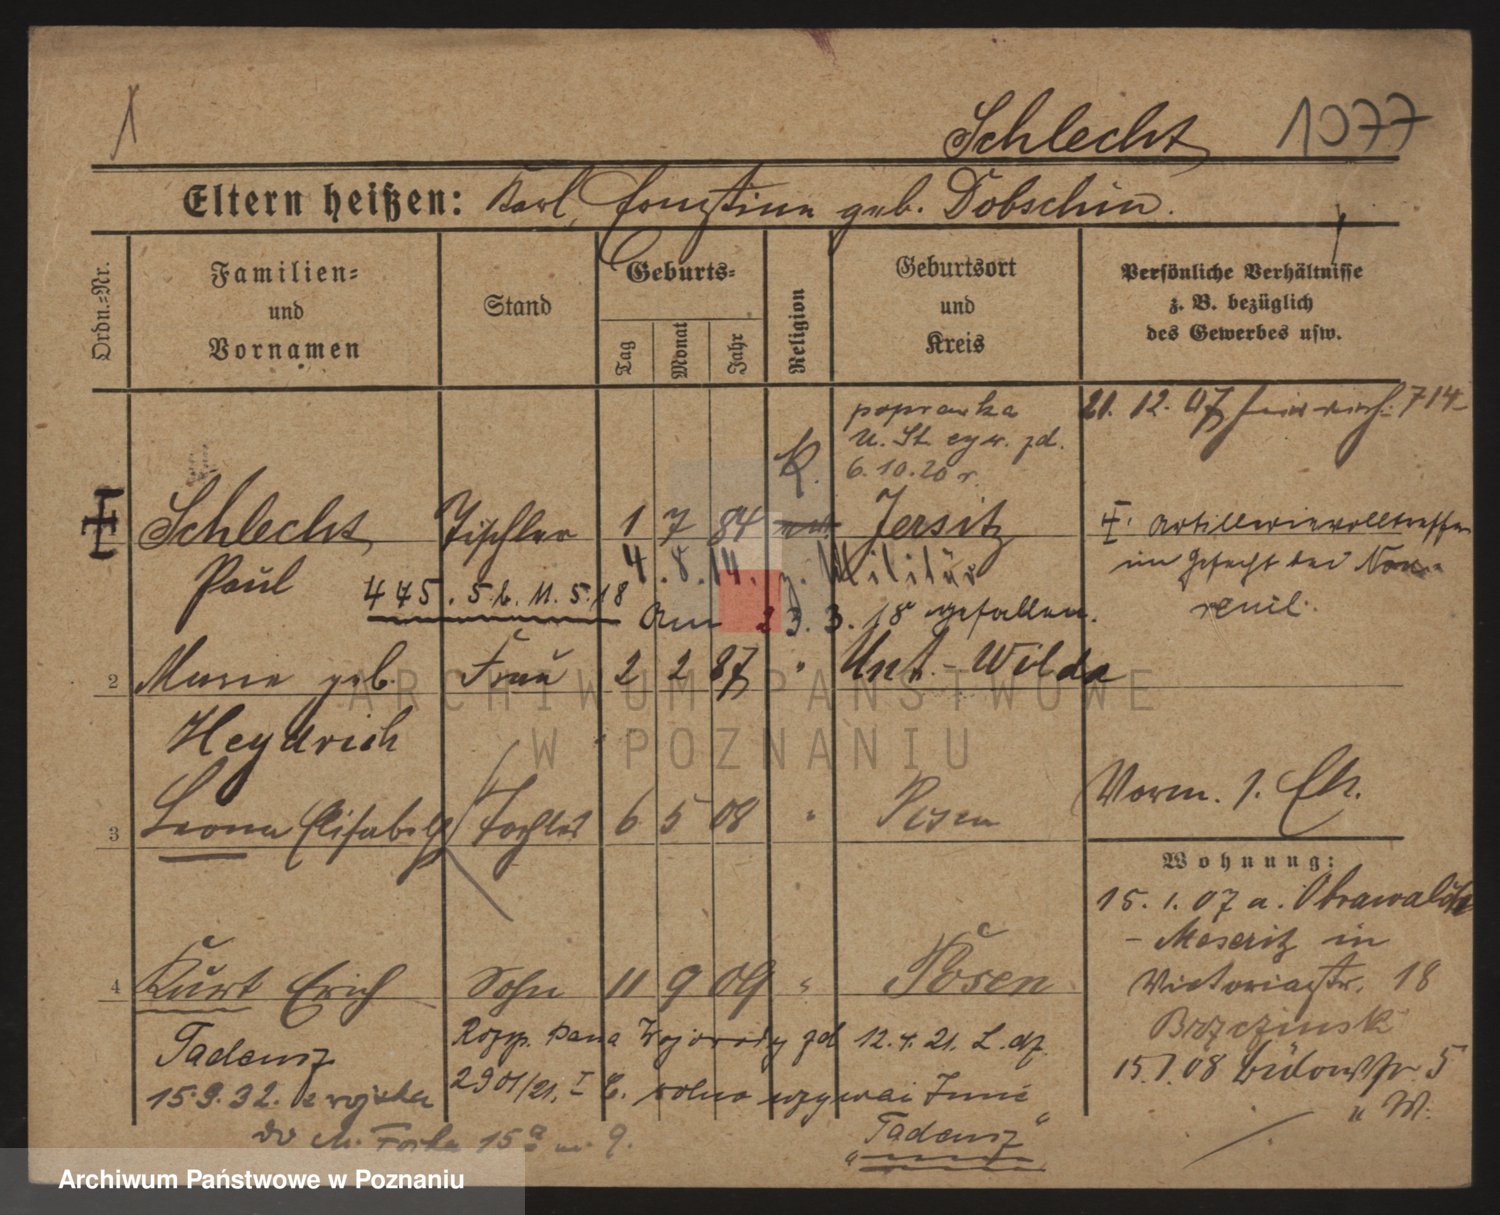 Schlecht 1077
Eltern heißen: Karl, Ernstine geb. Dobschin.
Ordn.=Nr.
Familien=
und
Vornamen
Stand
Geburts=
Tag
Monat
Jahr
Religion
Geburtsort
und
Kreis
Persönliche Verhältnisse
z. B. bezüglich
des Gewerbes usw.
poprawka
U. St. cyw. zd.
6.10.20 r.
21. 12. 07 714
K.
Schlecht Tischler 1 7 84 Jersitz
Paul
4.8.14. z. Militär
475. 5b. 11.5.18
Am 23.3.18 gefallen.
Artillerievolltreffer
im Gefecht bei
2 Marie geb. Frau 2 2 87 " Unt.-Wilda
Heydrich
3 Leona Elisabeth Tochter 6 5 08 " Posen
Vorm. 1. Eh.
Wohnung:
15. 1. 07 a. Obrawalde
- Meseritz in
Victoriastr. 18
Brzezinski
15.1.08 Bülowstr 5
" W.
4 Kurt Erich Sohn 11 9 09 " Posen
Tadeusz
Rozp. Pana Wojewody zd 12.4.21. L. dz.
2901/21. I C. wolno używać Imię
"Tadeusz"
15.9.32. z wojska
do M. 15a m. 9.
ARCHIWUM PAŃSTWOWE
W POZNANIU
Archiwum Państwowe w Poznaniu